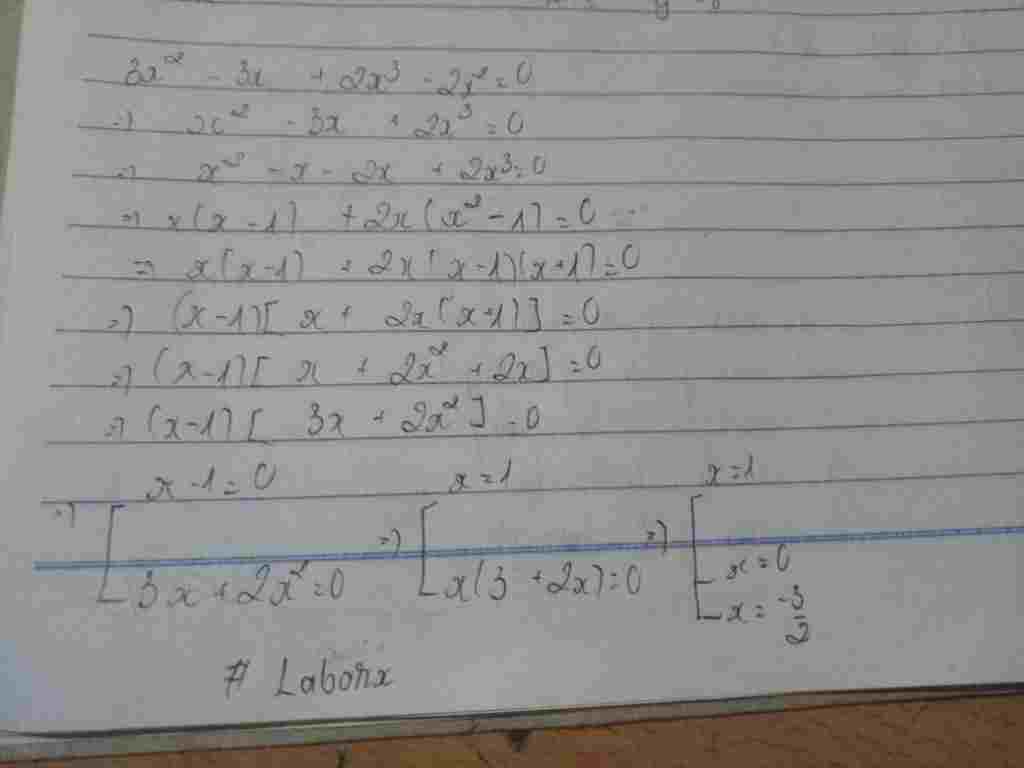 3x² - 3x + 2x³ - 2x² = 0
=> x² - 3x + 2x³ = 0
=> x² - x - 2x + 2x³ = 0
=> x(x - 1) + 2x(x² - 1) = 0
=> x(x - 1) + 2x(x - 1)(x + 1) = 0
=> (x - 1)[x + 2x(x + 1)] = 0
=> (x - 1)[x + 2x² + 2x] = 0
=> (x - 1)[3x + 2x²] = 0
=> [ x - 1 = 0 => [ x = 1 => [ x = 1
3x + 2x² = 0 x(3 + 2x) = 0 x = 0
x = -3/2
# Laborx